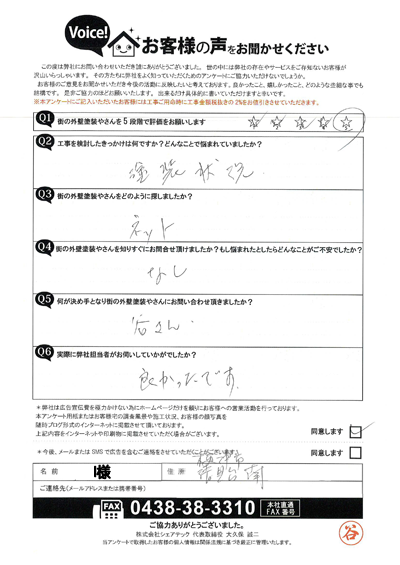 Voice! お客様の声をお聞かせください
この度は弊社にお問い合わせいただき誠にありがとうございます。世の中には弊社の存在やサービスをご存知ないお客様が
沢山いらっしゃいます。その方たちに弊社をよく知っていただくためのアンケートにご協力いただけないでしょうか。
お客様のご意見をお聞かせいただき今後の活動に反映したいと考えております。良かったこと、嬉しかったこと、どのような些細な事でも
結構です。是非ご協力のほどお願いいたします。出来るだけ具体的に書いていただけますと幸いです。
※本アンケートにご記入いただいたお客様には工事ご用命時に工事金額税抜きの2%をお値引きさせていただきます。
Q1 街の外壁塗装やさんを5段階で評価をお願いします ☆ ☆ ☆ ☆ ☆
Q2 工事を検討したきっかけは何ですか?どんなことで悩まれていましたか?
塗装状況
Q3 街の外壁塗装やさんをどのように探しましたか?
ネット
Q4 街の外壁塗装やさんを知りすぐにお問合せ頂けましたか?もし悩まれたとしたらどんなことがご不安でしたか?
なし
Q5 何が決め手となり街の外壁塗装やさんにお問い合わせ頂きましたか?
谷さん
Q6 実際に弊社担当者がお伺いしていかがでしたか?
良かったです。
*弊社は広告宣伝費を極力かけない為にホームページだけを頼りにお客様への営業活動を行っております。
本アンケート用紙またはお客様宅の調査風景や施工状況、お客様の顔写真を
随時ブログ形式のインターネットに掲載させて頂いております。
上記内容をインターネットや印刷物に掲載させていただく場合がございます。 同意します
*今後、メールまたはSMSで広告を含むご連絡をさせていただくことがございます。 同意します
名前 様 住所 南
ご連絡先(メールアドレスまたは携帯番号)
FAX 0438-38-3310 本社直通 FAX番号
ご協力ありがとうございました。
株式会社シェアテック 代表取締役 大久保 誠二
当アンケートで取得したお客様の個人情報は関係法規に基づき厳正に管理いたします。
谷